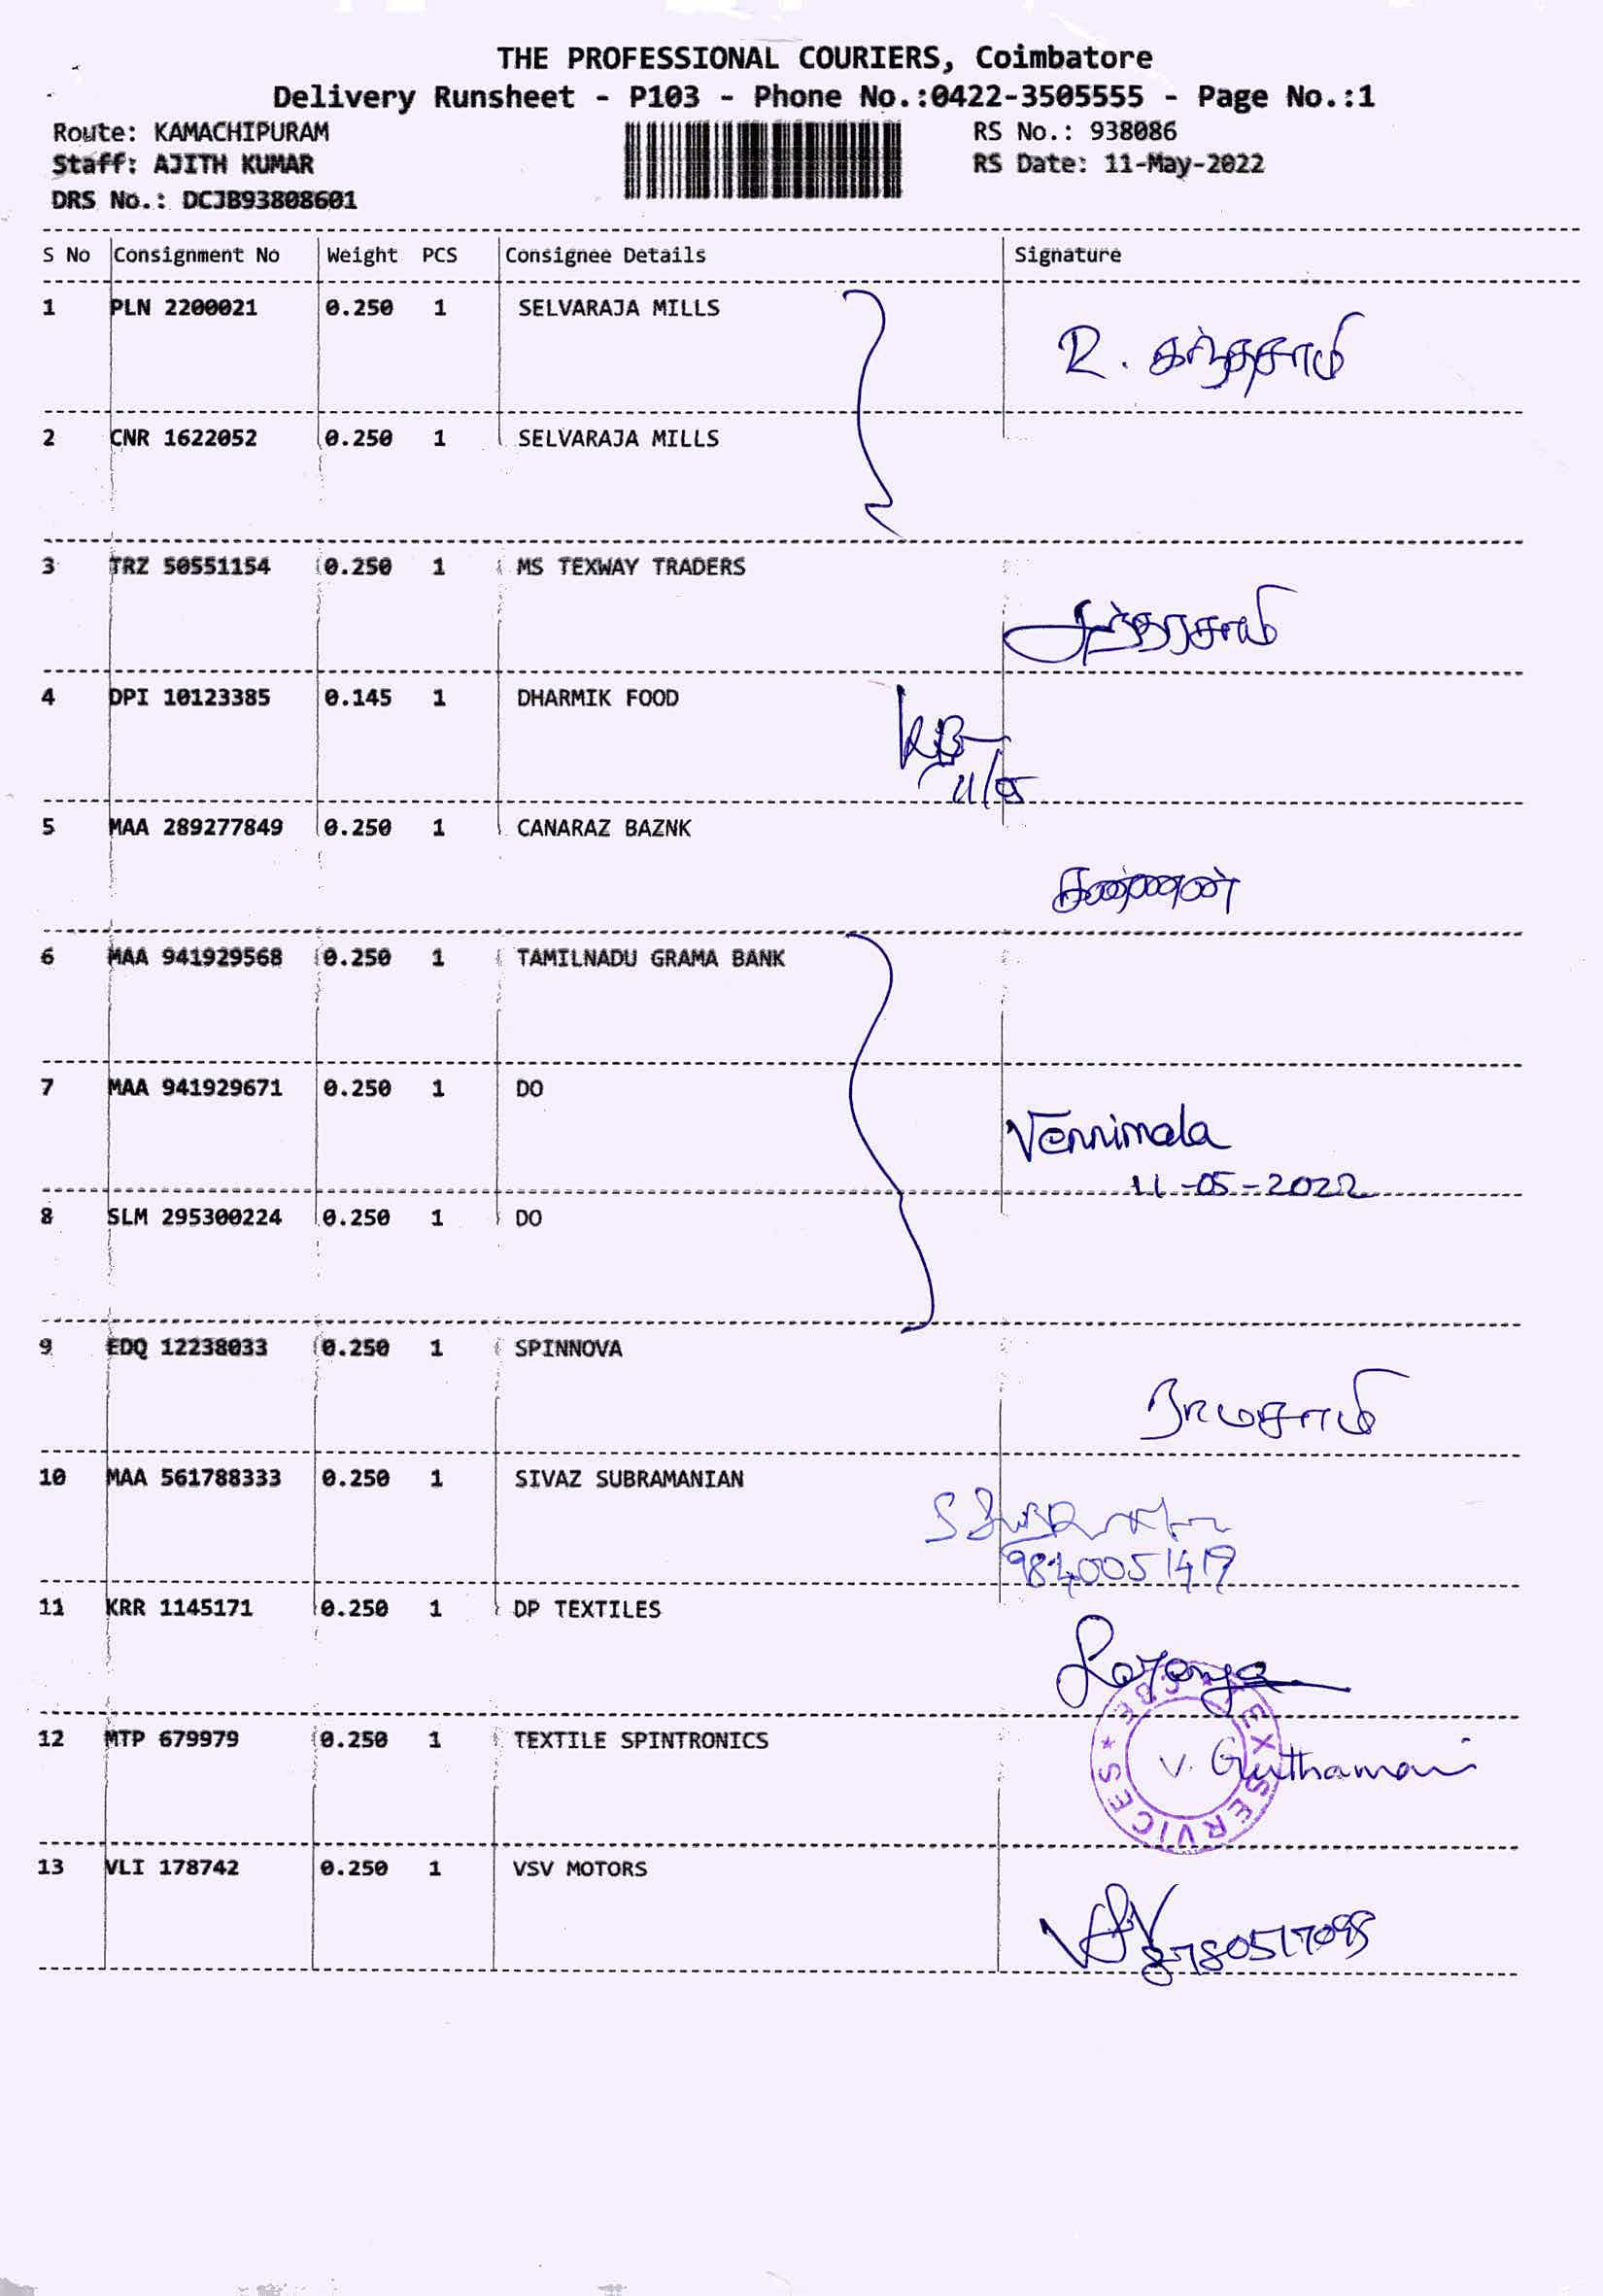 THE PROFESSIONAL COURIERS, Coimbatore
Delivery Runsheet - P103 - Phone No.:0422-3505555 - Page No.:1
Route: KAMACHIPURAM RS No.: 938086
Staff: AJITH KUMAR RS Date: 11-May-2022
DRS No.: DCJB93808601
S No Consignment No Weight PCS Consignee Details Signature
1 PLN 2200021 0.250 1 SELVARAJA MILLS
R. கந்தசாமி
2 CNR 1622052 0.250 1 SELVARAJA MILLS
3 TRZ 50551154 0.250 1 MS TEXWAY TRADERS
4 DPI 10123385 0.145 1 DHARMIK FOOD
11/05
5 MAA 289277849 0.250 1 CANARAZ BAZNK
6 MAA 941929568 0.250 1 TAMILNADU GRAMA BANK
7 MAA 941929671 0.250 1 DO
Vennimala
11-05-2022
8 SLM 295300224 0.250 1 DO
9 EDQ 12238033 0.250 1 SPINNOVA
ராமசாமி
10 MAA 561788333 0.250 1 SIVAZ SUBRAMANIAN
9840051419
11 KRR 1145171 0.250 1 DP TEXTILES
12 MTP 679979 0.250 1 TEXTILE SPINTRONICS
SERVICES * CBE *
13 VLI 178742 0.250 1 VSV MOTORS
VSV